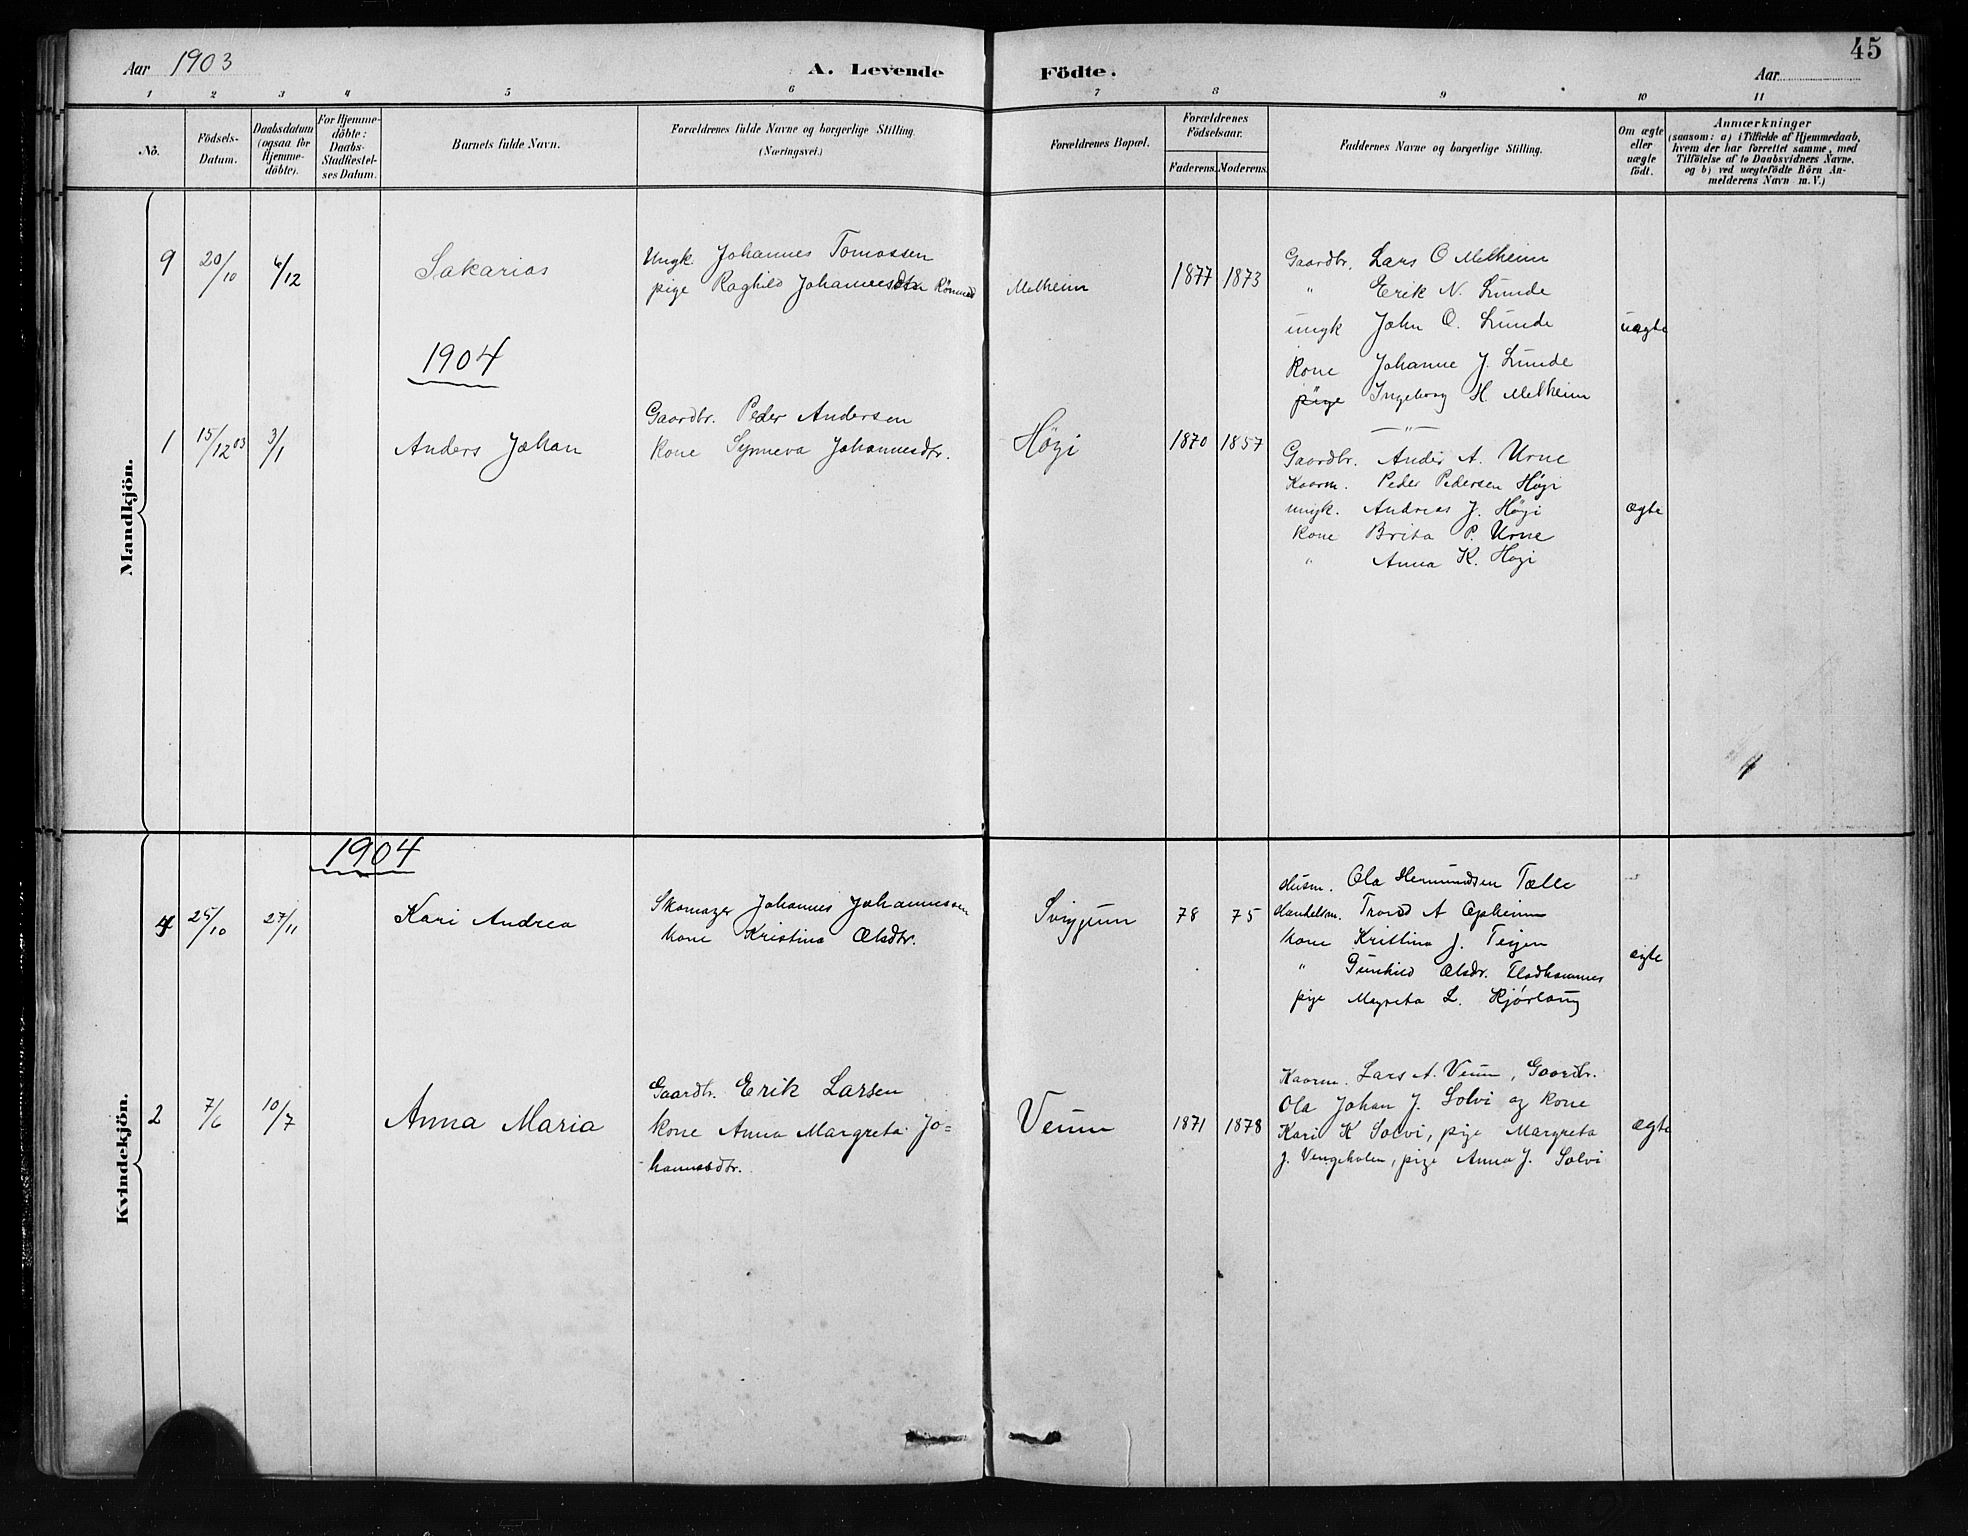 45
Aar 1903
A. Levende Födte.
Aar
1 2 3 4 5 6 7 8 9 10 11
No.
Födsels-Datum.
Daabsdatum (ogsaa for Hjemme-döbte).
For Hjemme-döbte: Daabs-Stadfæstel-ses Datum.
Barnets fulde Navn.
Forældrenes fulde Navne og borgerlige Stilling. (Næringsvei.)
Forældrenes Bopæl.
Forældrenes Födselsaar.
Faderens. Moderens.
Faddernes Navne og borgerlige Stilling.
Om ægte eller uægte födt.
Anmærkninger
(saasom: a) i Tilfælde af Hjemmedaab,
hvem der har forrettet samme, med
Tilföielse af to Daabsvidners Navne,
og b) ved uægtefödte Börn An-
melderens Navn m. V.)
Mandkjön.
9 20/10 6/12 Sakarias
Ungk. Johannes Tomassen
pige Raghild Johannesdtr
Melheim 1877 1873
Gaardbr. Lars O Melheim
" Erik N. Lunde
ungk John O. Lunde
Kone Johanne J. Lunde
pige Ingeborg H Melheim
uægte
1904
1 15/12 03 3/1 Anders Johan
Gaardbr. Peder Andersen
Kone Synneva Johannesdtr.
Høgi 1870 1857
— " —
Gaardbr. Anders A. Urne
Kaarm. Peder Pedersen Høgi
ungk. Andreas J. Høgi
Kone Brita P. Urne
" Anna K. Høgi
ægte
Kvindekjön.
1904
4 25/10 27/11 Kari Andrea
Skomager Johannes Johannessen
Kone Kristina Olsdtr.
Svigjum 78 75
Husm. Ola Hermundsen Tælle
Handelsm. Trond A Opheim
Kone Kristina J. Teigen
" Gunhild Olsdr.
pige Magreta L. Kjørlaug
ægte
2 7/6 10/7 Anna Maria
Gaardbr. Erik Larsen
Kone Anna Margreta Jo=
hannesdtr.
Veum 1871 1878
Kaarm. Lars A. Veum, Gaardbr.
Ola Johan J. Solvi og kone
Kari K Solvi, pige Margreta
J. Vengeholen, pige Anna J. Solvi
ægte